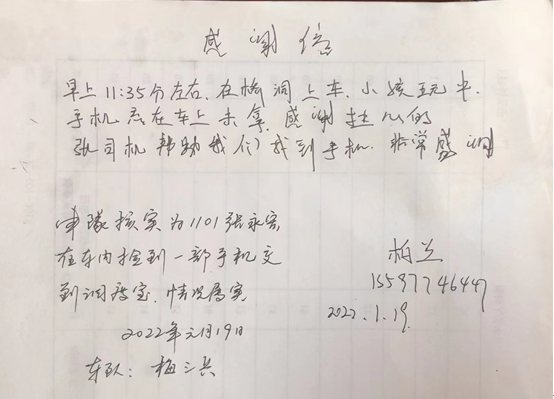 感谢信
早上11:35分左右.在桥洞上车.小孩玩中.
手机忘在车上未拿.感谢
张司机帮助我们找到手机.非常感谢
车队核实为1101张永客,
在车内捡到一部手机交
到调度室.情况属实
2022年元月19日
车队:梅三兵
柏兰
15597746447
2022.1.19.